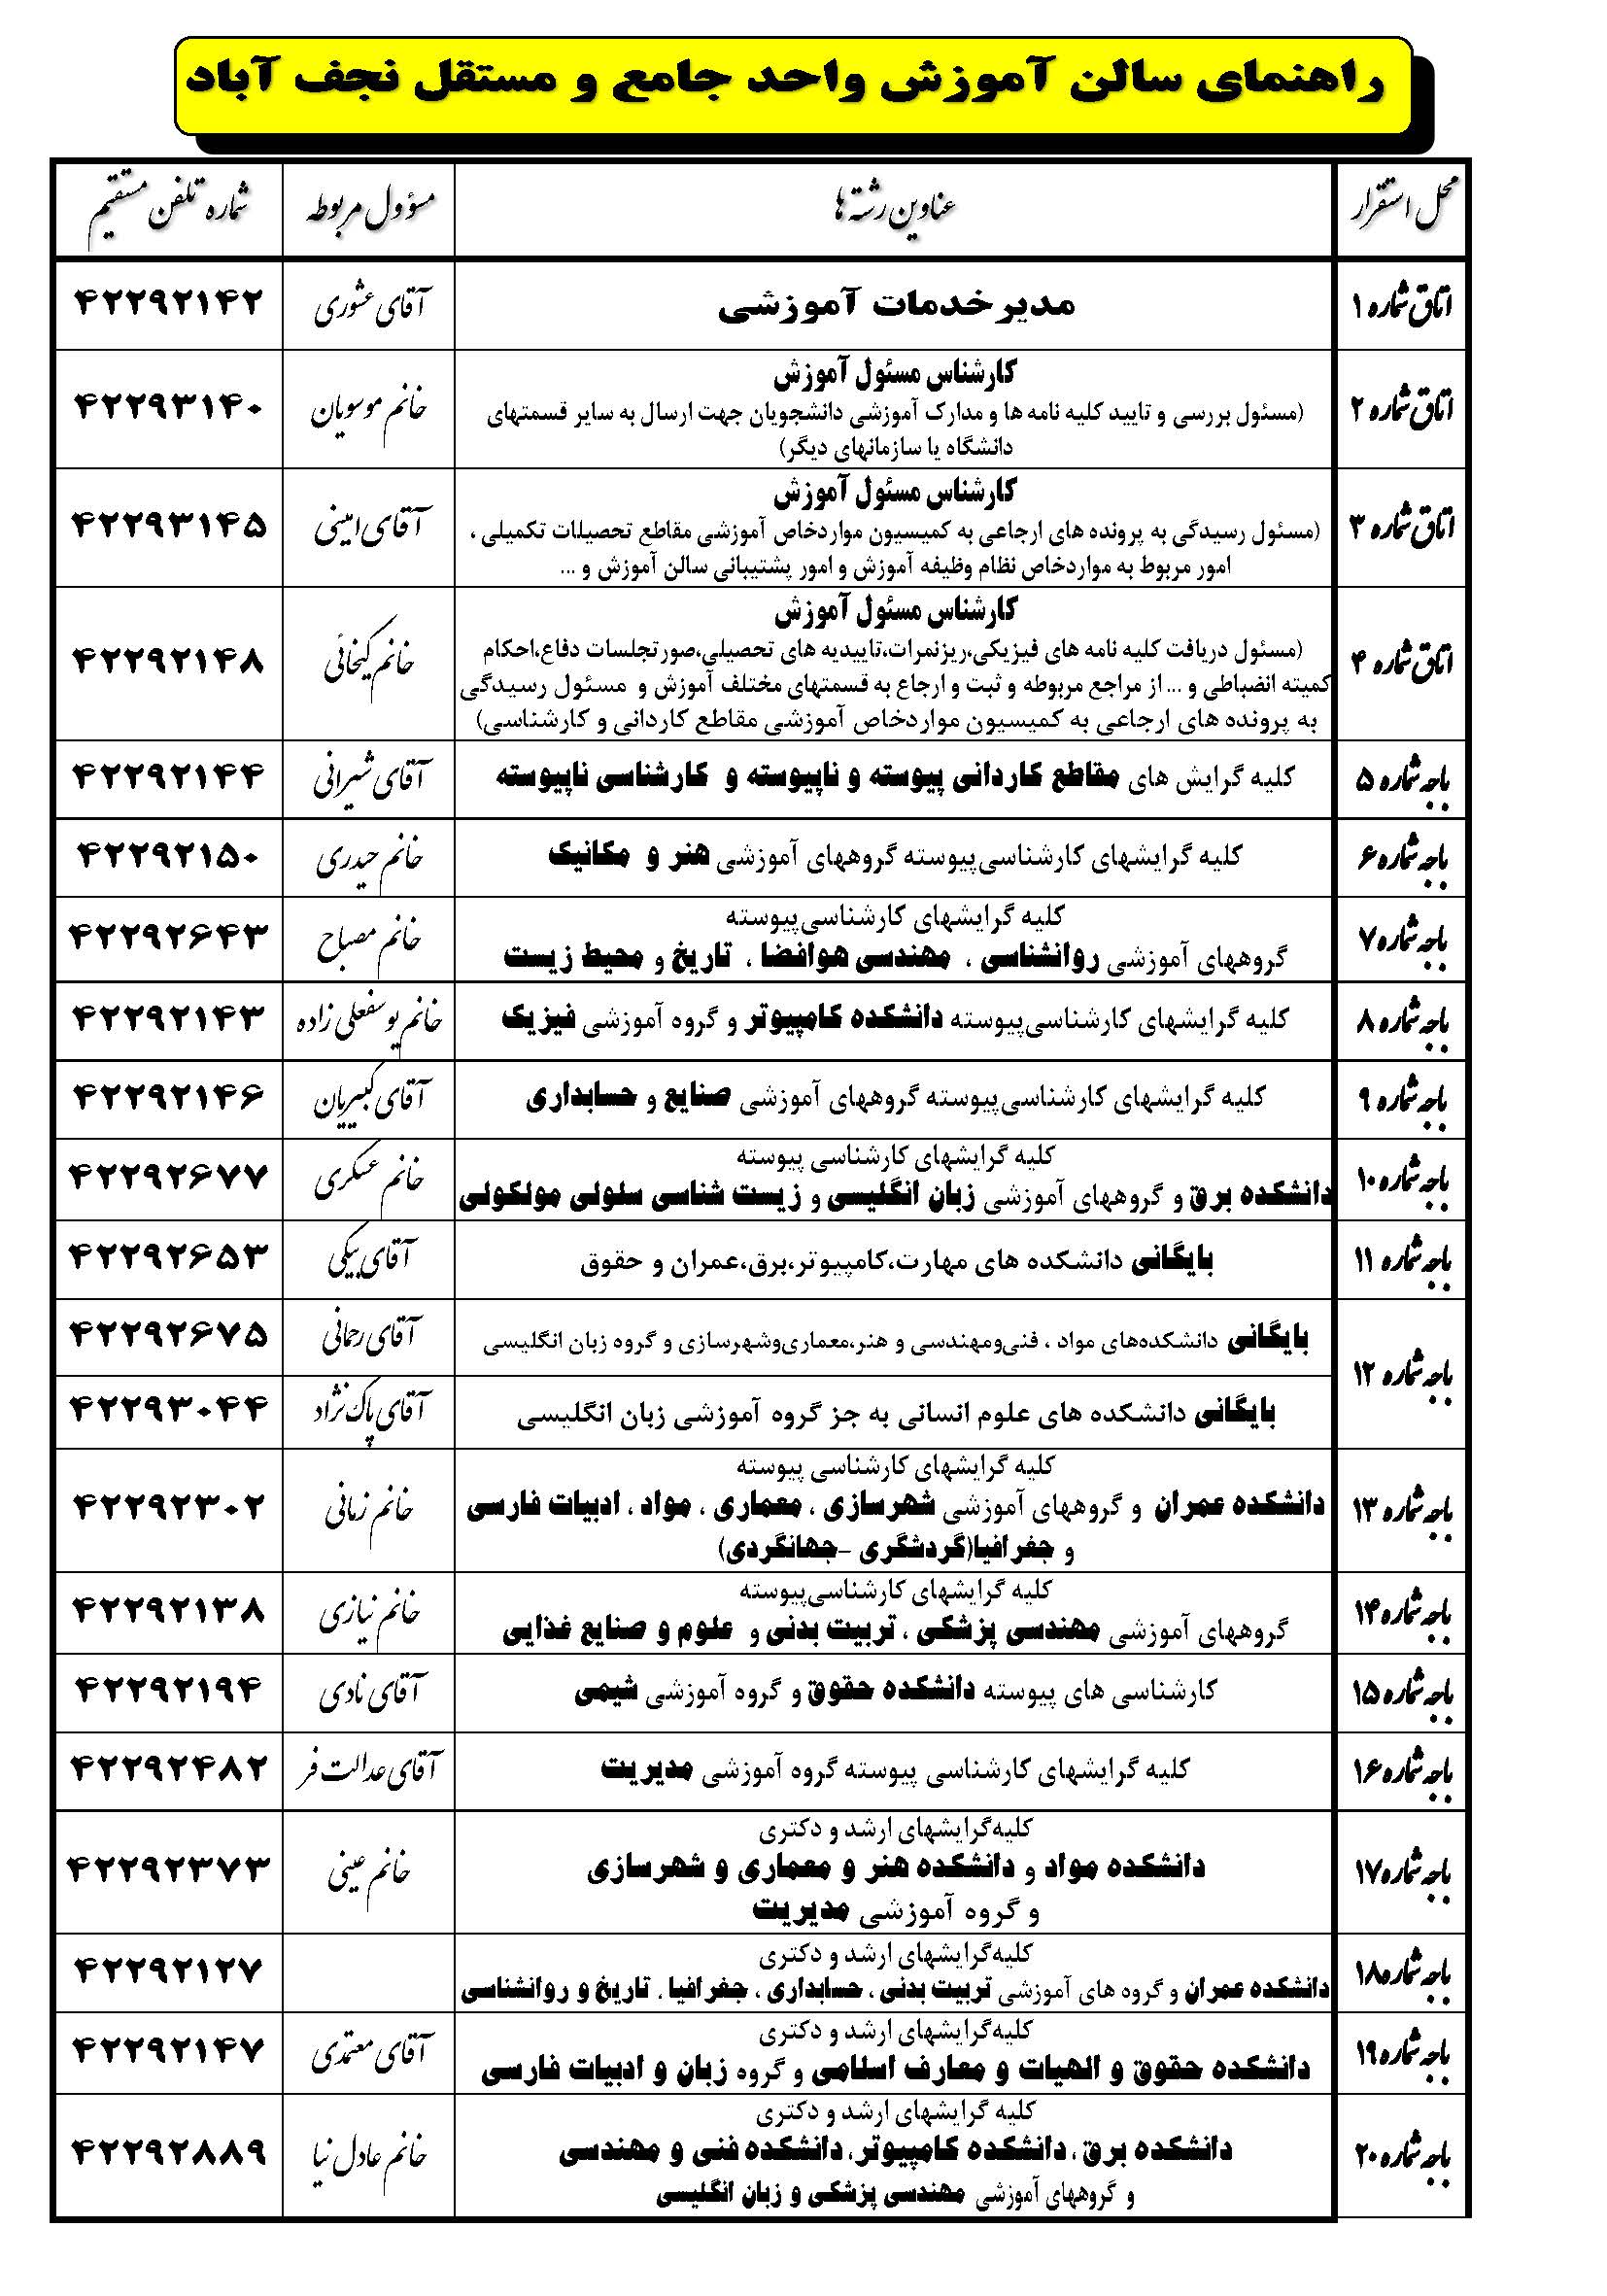 راهنمای سالن آموزش واحد جامع و مستقل نجف آباد
محل استقرار	عناوین رشته ها	مسؤول مربوطه	شماره تلفن مستقیم
اتاق شماره ۱	مدیر خدمات آموزشی	آقای عشوری	۴۲۲۹۲۱۴۲
کارشناس مسئول آموزش
اتاق شماره ۲	(مسئول بررسی و تایید کلیه نامه ها و مدارک آموزشی دانشجویان جهت ارسال به سایر قسمتهای	خانم موسویان	۴۲۲۹۳۱۴۰
دانشگاه یا سازمانهای دیگر)
کارشناس مسئول آموزش
اتاق شماره ۳	(مسئول رسیدگی به پرونده های ارجاعی به کمیسیون مواردخاص آموزشی مقاطع تحصیلات تکمیلی ،	آقای امینی	۴۲۲۹۳۱۴۵
امور مربوط به مواردخاص نظام وظیفه آموزش و امور پشتیبانی سالن آموزش و ...
کارشناس مسئول آموزش
اتاق شماره ۴	(مسئول دریافت کلیه نامه های فیزیکی،ریزنمرات،تاییدیه های تحصیلی،صورتجلسات دفاع،احکام	خانم کیخائی	۴۲۲۹۲۱۴۸
کمیته انضباطی و ... از مراجع مربوطه و ثبت و ارجاع به قسمتهای مختلف آموزش و مسئول رسیدگی
به پرونده های ارجاعی به کمیسیون مواردخاص آموزشی مقاطع کاردانی و کارشناسی)
باجه شماره ۵	کلیه گرایش های مقاطع کاردانی پیوسته و ناپیوسته و کارشناسی ناپیوسته	آقای شیرانی	۴۲۲۹۲۱۴۴
باجه شماره ۶	کلیه گرایشهای کارشناسی‌پیوسته گروههای آموزشی هنر و مکانیک	خانم حیدری	۴۲۲۹۲۱۵۰
کلیه گرایشهای کارشناسی‌پیوسته
باجه شماره ۷	گروههای آموزشی روانشناسی ، مهندسی هوافضا ، تاریخ و محیط زیست	خانم مصباح	۴۲۲۹۲۶۴۳
باجه شماره ۸	کلیه گرایشهای کارشناسی‌پیوسته دانشکده کامپیوتر و گروه آموزشی فیزیک	خانم یوسفعلی زاده	۴۲۲۹۲۱۴۳
باجه شماره ۹	کلیه گرایشهای کارشناسی‌پیوسته گروههای آموزشی صنایع و حسابداری	آقای کبیریان	۴۲۲۹۲۱۴۶
کلیه گرایشهای کارشناسی پیوسته
باجه شماره ۱۰	دانشکده برق و گروههای آموزشی زبان انگلیسی و زیست شناسی سلولی مولکولی	خانم عسکری	۴۲۲۹۲۶۷۷
باجه شماره ۱۱	بایگانی دانشکده های مهارت،کامپیوتر،برق،عمران و حقوق	آقای بیکی	۴۲۲۹۲۶۵۳
باجه شماره ۱۲	بایگانی دانشکده‌های مواد ، فنی‌ومهندسی و هنر،معماری‌وشهرسازی و گروه زبان انگلیسی	آقای رحمانی	۴۲۲۹۲۶۷۵
بایگانی دانشکده های علوم انسانی به جز گروه آموزشی زبان انگلیسی	آقای پاک نژاد	۴۲۲۹۳۰۴۴
کلیه گرایشهای کارشناسی پیوسته
باجه شماره ۱۳	دانشکده عمران و گروههای آموزشی شهرسازی ، معماری ، مواد ، ادبیات فارسی	خانم زمانی	۴۲۲۹۲۳۰۲
و جغرافیا(گردشگری -جهانگردی)
کلیه گرایشهای کارشناسی‌پیوسته
باجه شماره ۱۴	گروههای آموزشی مهندسی پزشکی ، تربیت بدنی و علوم و صنایع غذایی	خانم نیازی	۴۲۲۹۲۱۳۸
باجه شماره ۱۵	کارشناسی های پیوسته دانشکده حقوق و گروه آموزشی شیمی	آقای نادی	۴۲۲۹۲۱۹۴
باجه شماره ۱۶	کلیه گرایشهای کارشناسی پیوسته گروه آموزشی مدیریت	آقای عدالت فر	۴۲۲۹۲۴۸۲
کلیه‌گرایشهای ارشد و دکتری
باجه شماره ۱۷	دانشکده مواد و دانشکده هنر و معماری و شهرسازی	خانم عینی	۴۲۲۹۲۳۷۳
و گروه آموزشی مدیریت
کلیه‌گرایشهای ارشد و دکتری
باجه شماره ۱۸	دانشکده عمران و گروه های آموزشی تربیت بدنی ، حسابداری ، جغرافیا ، تاریخ و روانشناسی	۴۲۲۹۲۱۲۷
کلیه‌گرایشهای ارشد و دکتری
باجه شماره ۱۹	دانشکده حقوق و الهیات و معارف اسلامی و گروه زبان و ادبیات فارسی	آقای معتمدی	۴۲۲۹۲۱۴۷
کلیه گرایشهای ارشد و دکتری
باجه شماره ۲۰	دانشکده برق ، دانشکده کامپیوتر، دانشکده فنی و مهندسی	خانم عادل نیا	۴۲۲۹۲۸۸۹
و گروههای آموزشی مهندسی پزشکی و زبان انگلیسی